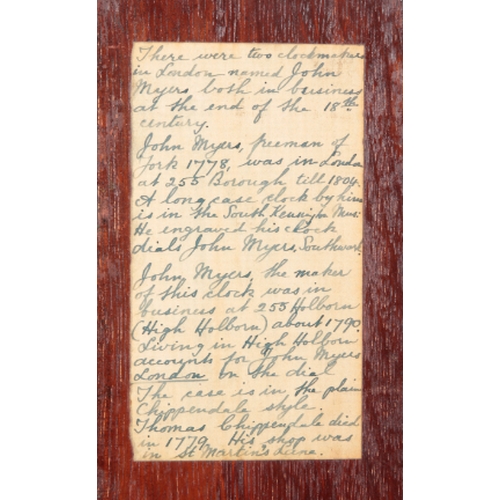 There were two clockmakers
in London named John
Myers both in business
at the end of the 18th
century.
John Myers, freeman of
York 1778, was in London
at 255 Borough till 1804.
A long case clock by him
is in the South Kensington Mus:
He engraved his clock
dials John Myers, Southwark
John Myers, the maker
of this clock was in
business at 255 Holborn
(High Holborn) about 1790.
Living in High Holborn
accounts for John Myers
London on the dial
The case is in the plain
Chippendale style.
Thomas Chippendale died
in 1779. His shop was
in St Martin's Lane.